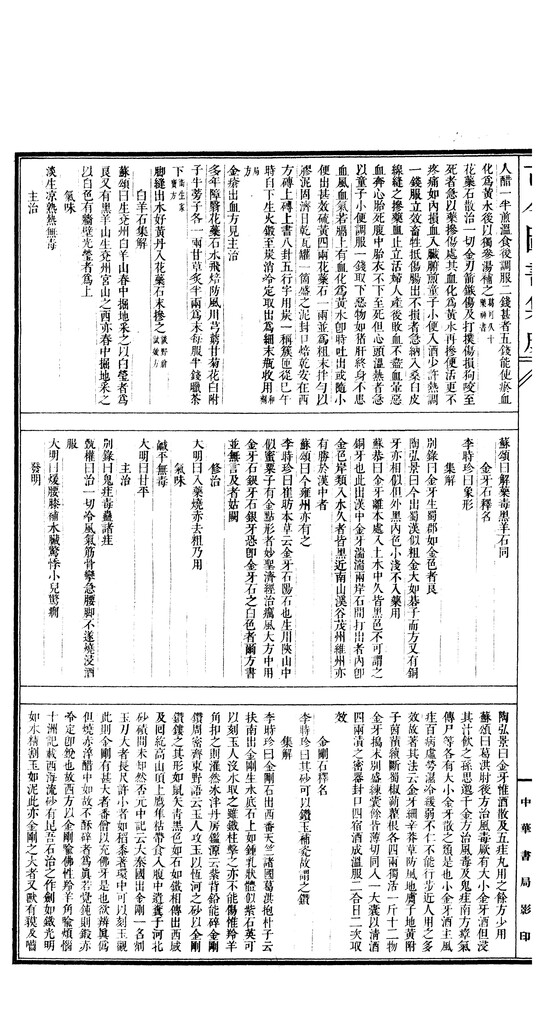 人醋一半煎溫食後調服二錢甚者五錢能使瘀血
化為黃水後以獨參湯補之葛可久十藥神書
花蕊石散治一切金刃箭鏃傷及打撲傷損狗咬至
死者急以藥摻傷處其血化為黃水再摻便活更不
疼痛如內損血入臟腑煎童子小便入酒少許熱調
一錢服立效畜牲抵傷腸出不損者急納入桑白皮
線縫之摻藥血止立活婦人產後敗血不盡血暈惡
血奔心胎死腹中胎衣不下至死但心頭溫煖者急
以童子小便調服一錢取下惡物如豬肝終身不患
血風血氣若膈上有血化為黃水即時吐出或隨小
便出甚效硫黃四兩花蕊石一兩並為粗末拌勻以
膠泥固濟日乾瓦罐一箇盛之泥封口焙乾安在西
方磚上磚上書八卦五行字用炭一秤簇匝從巳午
時自下生火煅至炭消冷定取出為細末瓶收用和劑局方
金瘡出血方見主治
多年障翳花蕊石水飛焙防風川芎藭甘菊花白附
子牛蒡子各一兩甘草炙半兩為末每服半錢臘茶
下衛生家寶方
腳縫出水好黃丹入花蕊石末摻之談野翁試效方
白羊石集解
蘇頌曰生兗州白羊山春中掘地采之以白瑩者為
良又有黑羊山生兗州宮山之西亦春中掘地采之
以白色有牆壁光瑩者為上
氣味
淡生涼熟熱無毒
主治
蘇頌曰解藥毒黑羊石同
金牙石釋名
李時珍曰象形
集解
別錄曰金牙生蜀郡如金色者良
陶弘景曰今出蜀漢似粗金大如棊子而方又有銅
牙亦相似但外黑內色小淺不入藥用
蘇恭曰金牙離本處入土水中久皆黑色不可謂之
銅牙也此出漢中金牙湍湍兩岸石間打出者內即
金色岸頹入水久者皆黑近南山溪谷茂州維州亦
有勝於漢中者
蘇頌曰今雍州亦有之
李時珍曰崔昉本草云金牙石陽石也生川陝山中
似蜜栗子有金點形者妙聖濟經治癘風大方中用
金牙石銀牙石銀牙恐即金牙石之白色者爾方書
並無言及者姑闕
修治
大明曰入藥燒赤去粗乃用
氣味
鹹平無毒
大明曰甘平
主治
別錄曰鬼疰毒蠱諸疰
甄權曰治一切冷風氣筋骨攣急腰腳不遂燒浸酒
服
大明曰煖腰膝補水臟驚悸小兒驚癇
發明
陶弘景曰金牙惟酒散及五疰丸用之餘方少用
蘇頌曰葛洪肘後方治風毒厥有大小金牙酒但浸
其汁飲之孫思邈千金方治風毒及鬼疰南方瘴氣
傳尸等各有大小金牙散之類是也小金牙酒主風
疰百病虛勞濕冷緩弱不仁不能行步近人用之多
效故著其法云金牙細辛莽草防風地膚子地黃附
子茵蕷續斷蜀椒蒴藋根各四兩獨活一斤十二物
金牙搗末別盛練囊餘皆薄切同入一大囊以清酒
四兩漬之密器封口四宿酒成溫服二合日二次取
效
金剛石釋名
李時珍曰其砂可以鑽玉補瓷故謂之鑽
集解
李時珍曰金剛石出西番天竺諸國葛洪抱朴子云
扶南出金剛生水底石上如鍾乳狀體似紫石英可
以刻玉人沒水取之雖鐵椎擊之亦不能傷惟羚羊
角扣之則漼然冰泮丹房鑑源云紫背鉛能碎金剛
鑽周密齊東野語云玉人攻玉以恆河之砂以金剛
鑽鏤之其形如鼠矢青黑色如石如鐵相傳出西域
及回紇高山頂上鷹隼粘帶食入腹中遺糞于河北
砂磧間未知然否元中記云大秦國出金剛一名削
玉刀大者長尺許小者如稻黍著環中可以刻玉觀
此則金剛有甚大者番僧以充佛牙是也欲辨眞偽
但燒赤淬醋中如故不酥碎者為眞若覺鈍則煅赤
冷定即銳也故西方以金剛喻佛性羚羊角喻煩惱
十洲記載西海流砂有昆吾石治之作劍如鐵光明
如水精割玉如泥此亦金剛之大者又獸有貘及囓
中華書局影印